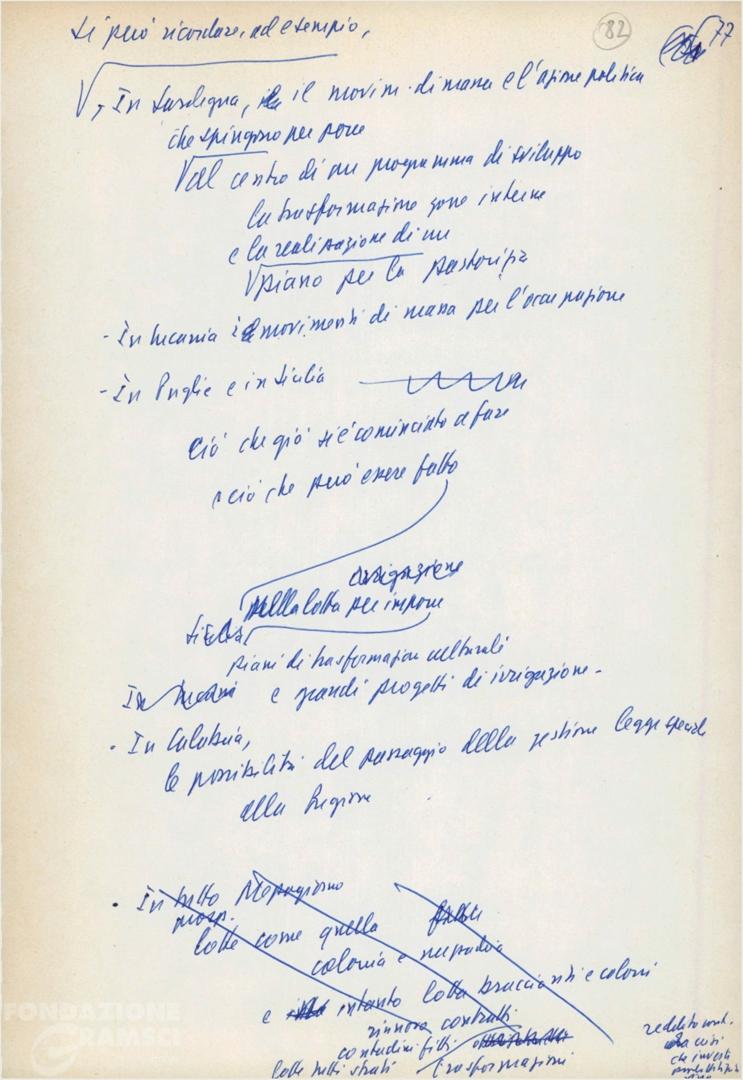 82
77
si può ricordare, ad esempio,
In Sardegna, il movim. di massa e l'azione politica
che spingono per porre
al centro di un programma di sviluppo
la trasformazione zone interne
e la realizzazione di un
piano per la pastorizia
- In Lucania i movimenti di massa per l'occupazione
- In Puglie e in Sicilia
ciò che già si è cominciato a fare
e ciò che può essere fatto
irrigazione
nella lotta per imporre
piani di trasformazion colturali
In e grandi progetti di irrigazione -
- In Calabria,
le possibilità del passaggio della gestione legge speciale
alla Regione
- In tutto Mezzogiorno
lotte come quella
colonia e mezzadria
e intanto lotta braccianti e coloni
rinnovo contratti
contadini fitti
lotte tutti strati trasformazioni
reddito cont.
che investi
FONDAZIONE
GRAMSCI